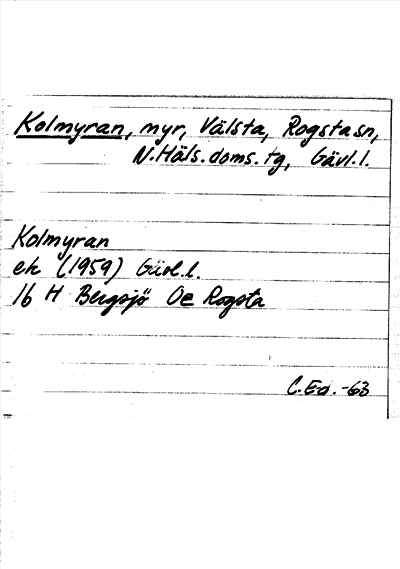 Kolmyran, myr, Välsta, Rogsta sn,
N. Häls. doms. tg, Gävl. l.
Kolmyran
ek (1959) Gävl. l.
16 H Bergsjö Oe Rogsta
C. Ed. -63